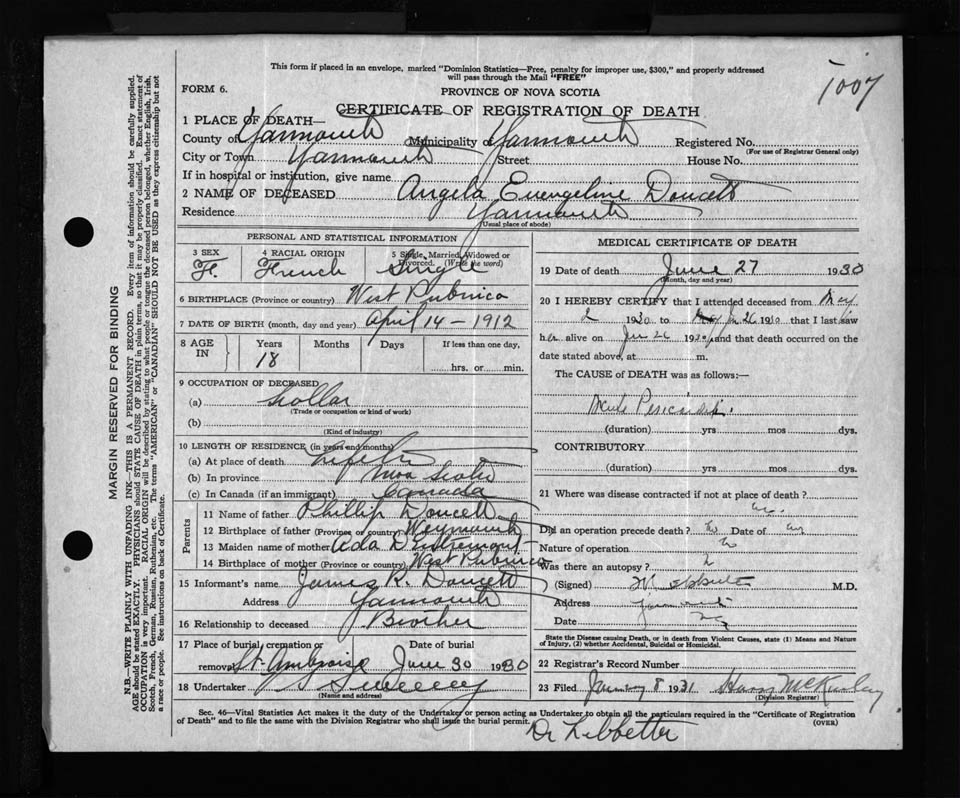 This form if placed in an envelope, marked "Dominion Statistics—Free, penalty for improper use, $300," and properly addressed
will pass through the Mail "FREE"
1007
FORM 6.
PROVINCE OF NOVA SCOTIA
CERTIFICATE OF REGISTRATION OF DEATH
1 PLACE OF DEATH—
County of Yarmouth Municipality of Yarmouth Registered No.
(For use of Registrar General only)
City or Town Yarmouth Street House No.
If in hospital or institution, give name
2 NAME OF DECEASED Angela Evengeline Doucett
Residence Yarmouth
(Usual place of abode)
PERSONAL AND STATISTICAL INFORMATION
3 SEX 4 RACIAL ORIGIN 5 Single, Married, Widowed or Divorced. (Write the word)
F. French Single
6 BIRTHPLACE (Province or country) West Pubnico
7 DATE OF BIRTH (month, day and year) April 14 - 1912
8 AGE IN Years Months Days If less than one day,
18 hrs. or min.
9 OCCUPATION OF DECEASED
(a) Scollar
(Trade or occupation or kind of work)
(b)
(Kind of industry)
10 LENGTH OF RESIDENCE (in years and months)
(a) At place of death
(b) In province Nova Scotia
(c) In Canada (if an immigrant) Canada
Parents
11 Name of father Phillip Doucett
12 Birthplace of father (Province or country) Weymouth
13 Maiden name of mother Ada D'Entremont
14 Birthplace of mother (Province or country) West Pubnico
15 Informant's name James R. Doucett
Address Yarmouth
16 Relationship to deceased Brother
17 Place of burial, cremation or removal Date of burial
St. Ambroise June 30 1930
18 Undertaker Sweeney
MEDICAL CERTIFICATE OF DEATH
19 Date of death June 27 1930
(Month, day and year)
20 I HEREBY CERTIFY that I attended deceased from May
2 1930 to Jun 26 1930 that I last saw
her alive on Jun 26 1930, and that death occurred on the
date stated above, at m.
The CAUSE of DEATH was as follows:—
(duration) yrs mos dys.
CONTRIBUTORY
(duration) yrs mos dys.
21 Where was disease contracted if not at place of death?
Did an operation precede death? Date of
Nature of operation
Was there an autopsy?
(Signed) M.D.
Address
Date
State the Disease causing Death, or in death from Violent Causes, state (1) Means and Nature
of Injury, (2) whether Accidental, Suicidal or Homicidal.
22 Registrar's Record Number
23 Filed January 8 1931 Harry McKinley
(Division Registrar)
Sec. 46—Vital Statistics Act makes it the duty of the Undertaker or person acting as Undertaker to obtain all the particulars required in the "Certificate of Registration
of Death" and to file the same with the Division Registrar who shall issue the burial permit.
(OVER)
Dr Lebbetter
MARGIN RESERVED FOR BINDING
N.B.—WRITE PLAINLY WITH UNFADING INK—THIS IS A PERMANENT RECORD. Every item of information should be carefully supplied.
AGE should be stated EXACTLY. PHYSICIANS should STATE CAUSE OF DEATH in plain terms, so that it may be properly classified. Exact statement of
OCCUPATION is very important. RACIAL ORIGIN will be described by stating to what people or tongue the deceased person belonged, whether English, Irish,
Scotch, French, German, Russian, Ruthenian, etc. The terms "AMERICAN" or "CANADIAN" SHOULD NOT BE USED as they express citizenship but not
a race or people. See instructions on back of Certificate.